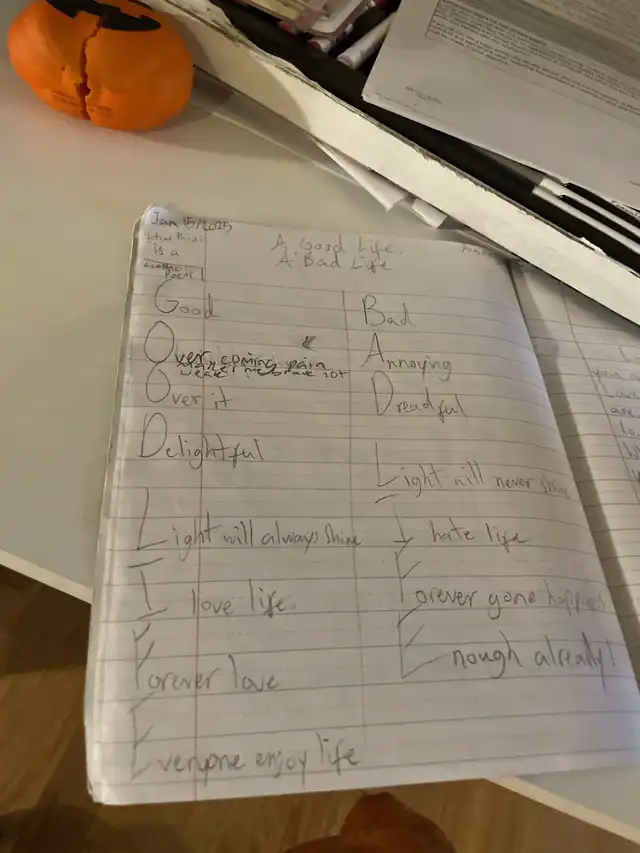 Jan 15/2025
is a
A Good Life
A Bad Life
Good
Over coming pain
Over it
Delightful
Light will always shine
I love life
Forever love
Everyone enjoy life
Bad
Annoying
Dreadful
Light will never shine
I hate life
Forever gone happiness
Enough already!